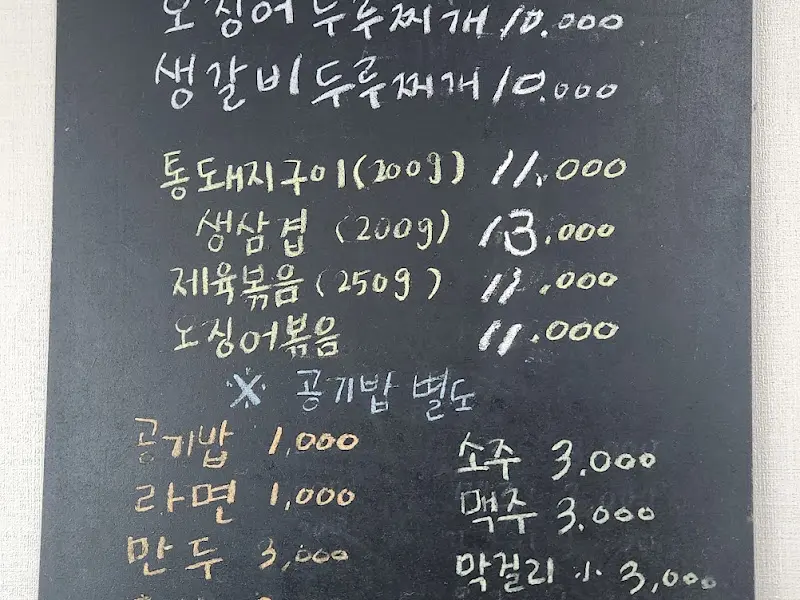 오징어두루찌개 10.000
생갈비두루찌개 10.000
통돼지구이(200g) 11.000
생삼겹 (200g) 13.000
제육볶음(250g) 11.000
오징어볶음 11.000
※ 공기밥 별도
공기밥 1,000
라면 1,000
만두 3,000
소주 3.000
맥주 3.000
막걸리 3,000